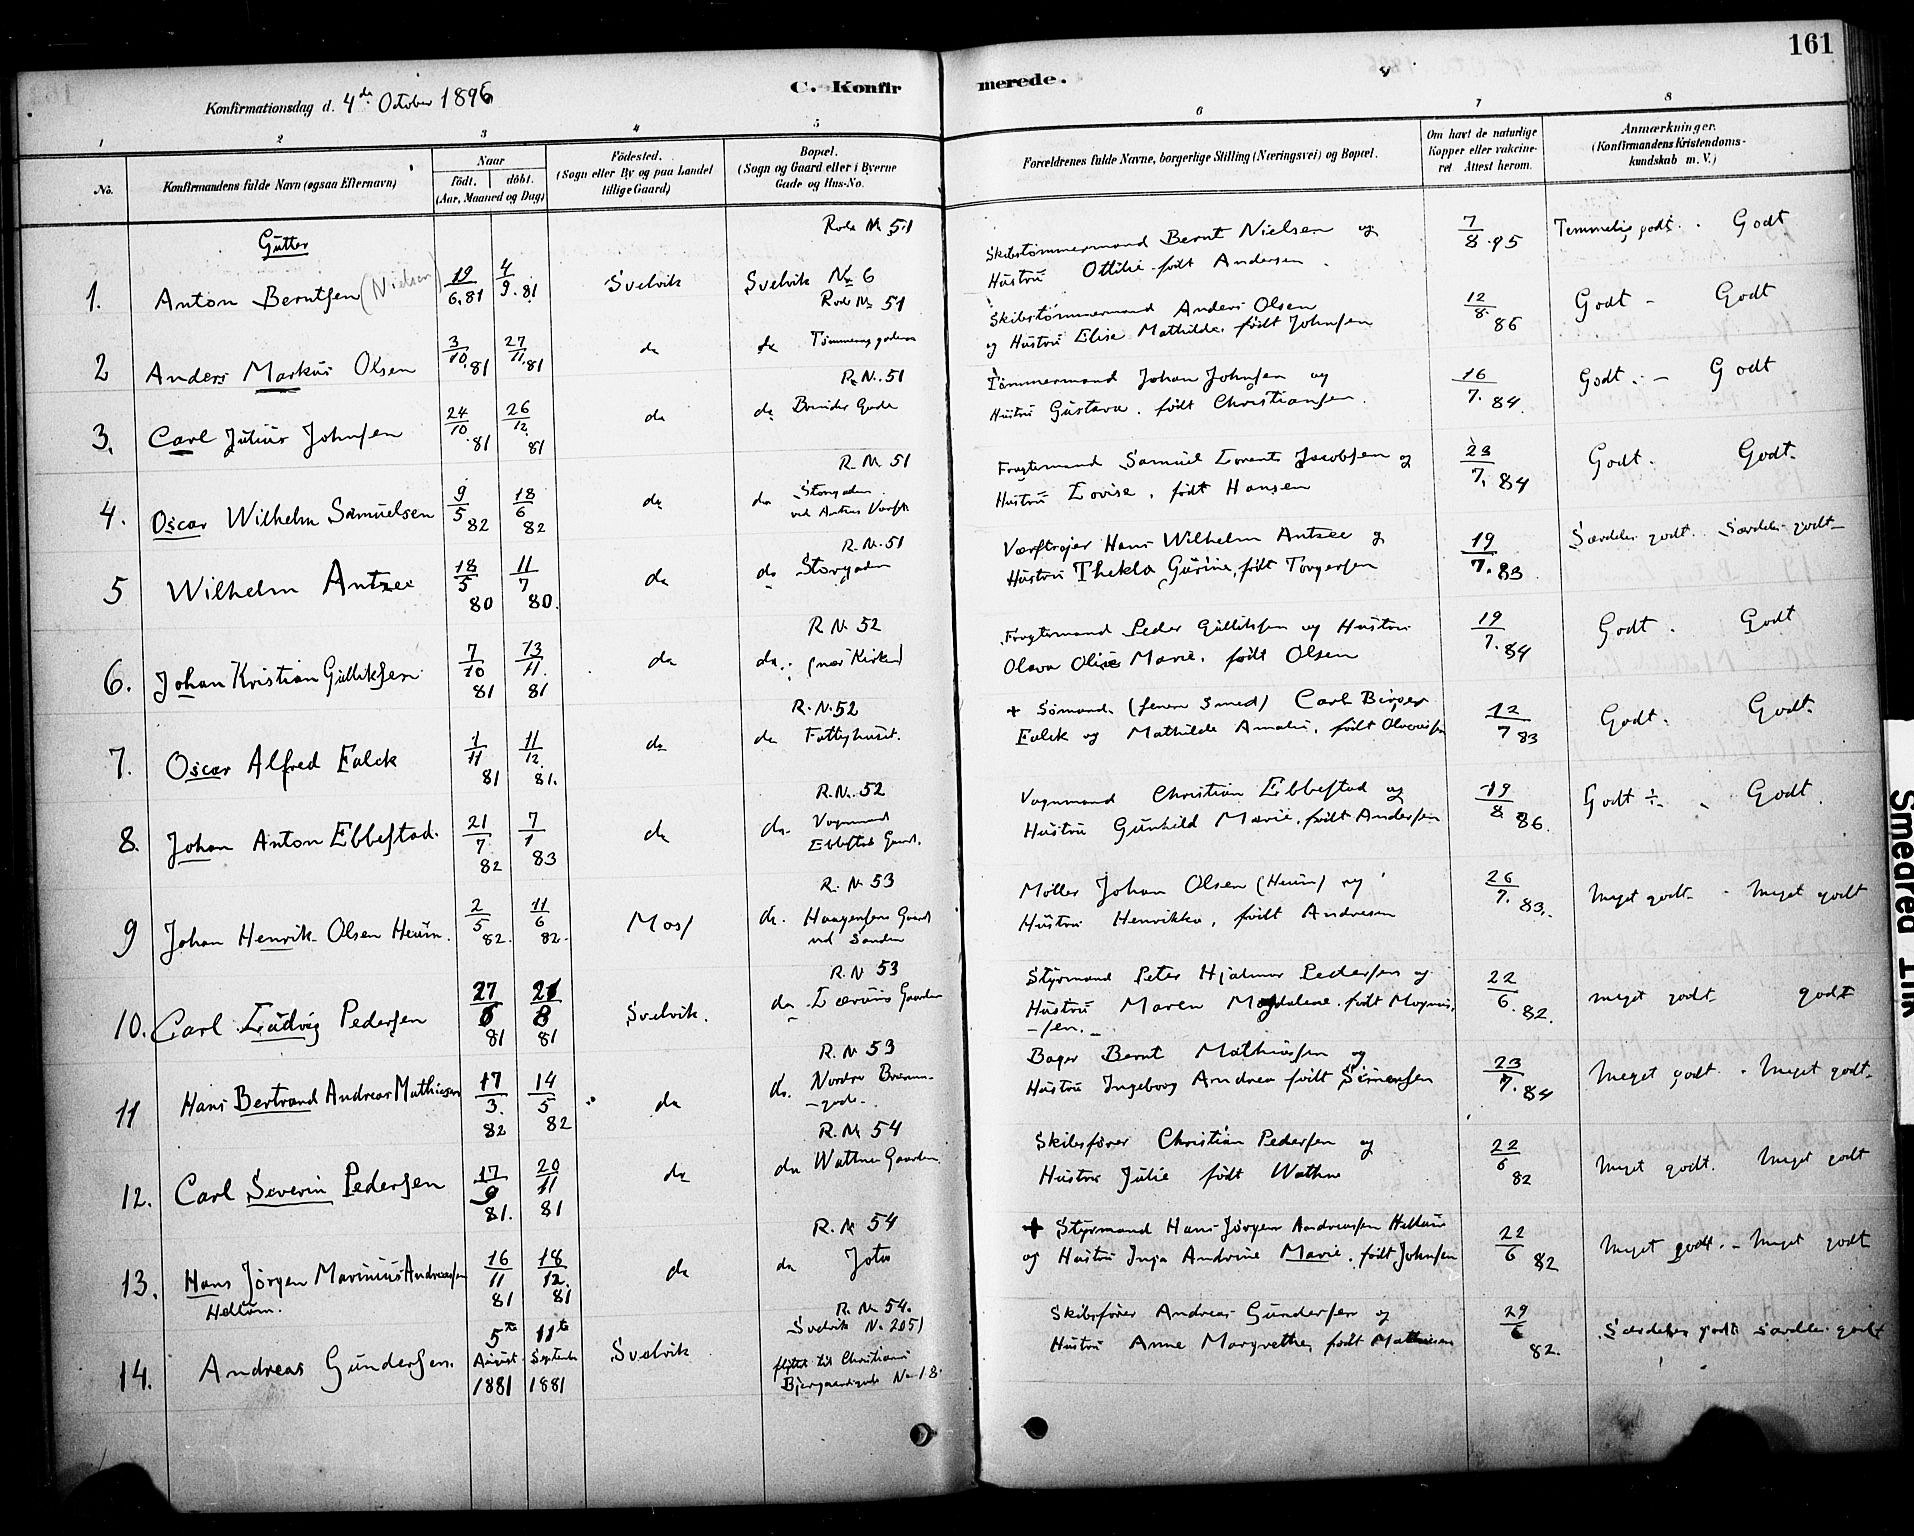 161
C. Konfirmerede.
Konfirmationsdag d. 4de October 1896
1 2 3 4 5 6 7 8
No.
Konfirmandens fulde Navn (ogsaa Efternavn)
Naar
födt. döbt.
(Aar, Maaned og Dag)
Födested.
(Sogn eller By og paa Landet
tillige Gaard)
Bopæl.
(Sogn og Gaard eller i Byerne
Gade og Hus-No.
Forældrenes fulde Navne, borgerlige Stilling (Næringsvei) og Bopæl.
Om havt de naturlige
Kopper eller vakcine-
ret Attest herom.
Anmærkninger.
(Konfirmandens Kristendoms-
kundskab m. V.)
Gutter
Rode No 51
1. Anton Berntsen (Nielsen) 19/6.81 4/9.81 Svelvik Svelvik No 6
Skibstömmermand Bernt Nielsen og
Hustru Ottilie födt Andersen.
7/8.95 Temmelig godt. Godt
Rode No 51
2 Anders Markus Olsen 3/10.81 27/11.81 do do
Skibstömmermand Anders Olsen
og Hustru Elise Mathilde födt Johnsen
12/8 86 Godt - Godt
R. N. 51
3. Carl Julius Johnsen 24/10 81 26/12 81 do do Gade
Tömmermand Johan Johnsen og
Hustru Gustava. födt Christiansen.
16/7. 84. Godt. - Godt
R. No 51
4. Oscar Wilhelm Samuelsen 9/5 82 18/6 82 do do Storgaden
ved Antzees Værft
Samuel Lorents Jacobsen og
Hustru Lovise, födt Hansen
23/7. 84 Godt. Godt.
R. N. 51
5 Wilhelm Antzee 18/5 80 11/7 80. do do Storgaden
Værftseier Hans Wilhelm Antzee og
Hustru Thekla Gurine, födt Torgersen
19/7. 83 Særdeles godt. Særdeles godt
R. N. 52
6. Johan Kristian Gulliksen 7/10 81 13/11 81 do do. (nær Kirken)
Peder Gulliksen og Hustru
Olava Oline Marie, födt Olsen
19/7. 84 Godt. Godt
R. N. 52
7. Oscar Alfred Falck 1/11 81 11/12 81. do do Fattighuset.
+ Sömand. (senere Smed) Carl Birger
Falck og Mathilde Amalie, födt
12/7 83 Godt. Godt.
R. N. 52
8. Johan Anton Ebbestad. 21/7 82 7/1 83 do do. Vognmand
Ebbestads Gaard.
Vognmand Christian Ebbestad og
Hustru Gunhild Marie, födt Andersen
19/8 86. Godt ÷. Godt.
R. N. 53
9 Johan Henrik Olsen Heum. 2/5 82. 11/6 82. Moss do. Haagensens Gaard
ved Sanden
Møller Johan Olsen (Heum) og
Hustru Henrikka, födt Andresen
26/7. 83. Meget godt - Meget godt
R. N 53
10. Carl Ludvig Pedersen 27/6 81 21/8 81 Svelvik. do Gaarden
Styrmand Peter Hjalmar Pedersen og
Hustru Maren Magdalene födt Magnus-
-sen.
22/6. 82. Meget godt godt
R. N 53
11 Hans Bertrand Andreas Mathiesen 17/3. 82 14/5 82 do do. Nordre
-gade.
Bager Bernt Mathiassen og
Hustru Ingeborg Andrea födt Simensen
23/7. 84 Meget godt. - Meget godt
R. No 54
12. Carl Severin Pedersen 17/9 81. 20/11 81 do do Wathne Gaarden.
Skibsförer Christian Pedersen og
Hustru Julie födt Wathne
22/6 82 Meget godt. Meget godt
R. No 54
13. Hans Jörgen Marinius Andreassen
Hellum. 16/11 81 18/12. 81 do do
+ Styrmand Hans Jörgen Andreassen Hellum
og Hustru Inga Andrine Marie, födt Johnsen
22/6 82 Meget godt. - Meget godt
R. No 54.
Svelvik N. 205
14. Andreas Gundersen. 5te August 1881 11te September 1881 Svelvik
flyttet til Christiania
No 18.
Skibsförer Andreas Gundersen og
Hustru Anne Margrethe, födt Mathiesen
29/6 82. Særdeles godt særdeles godt
Smeared Ink